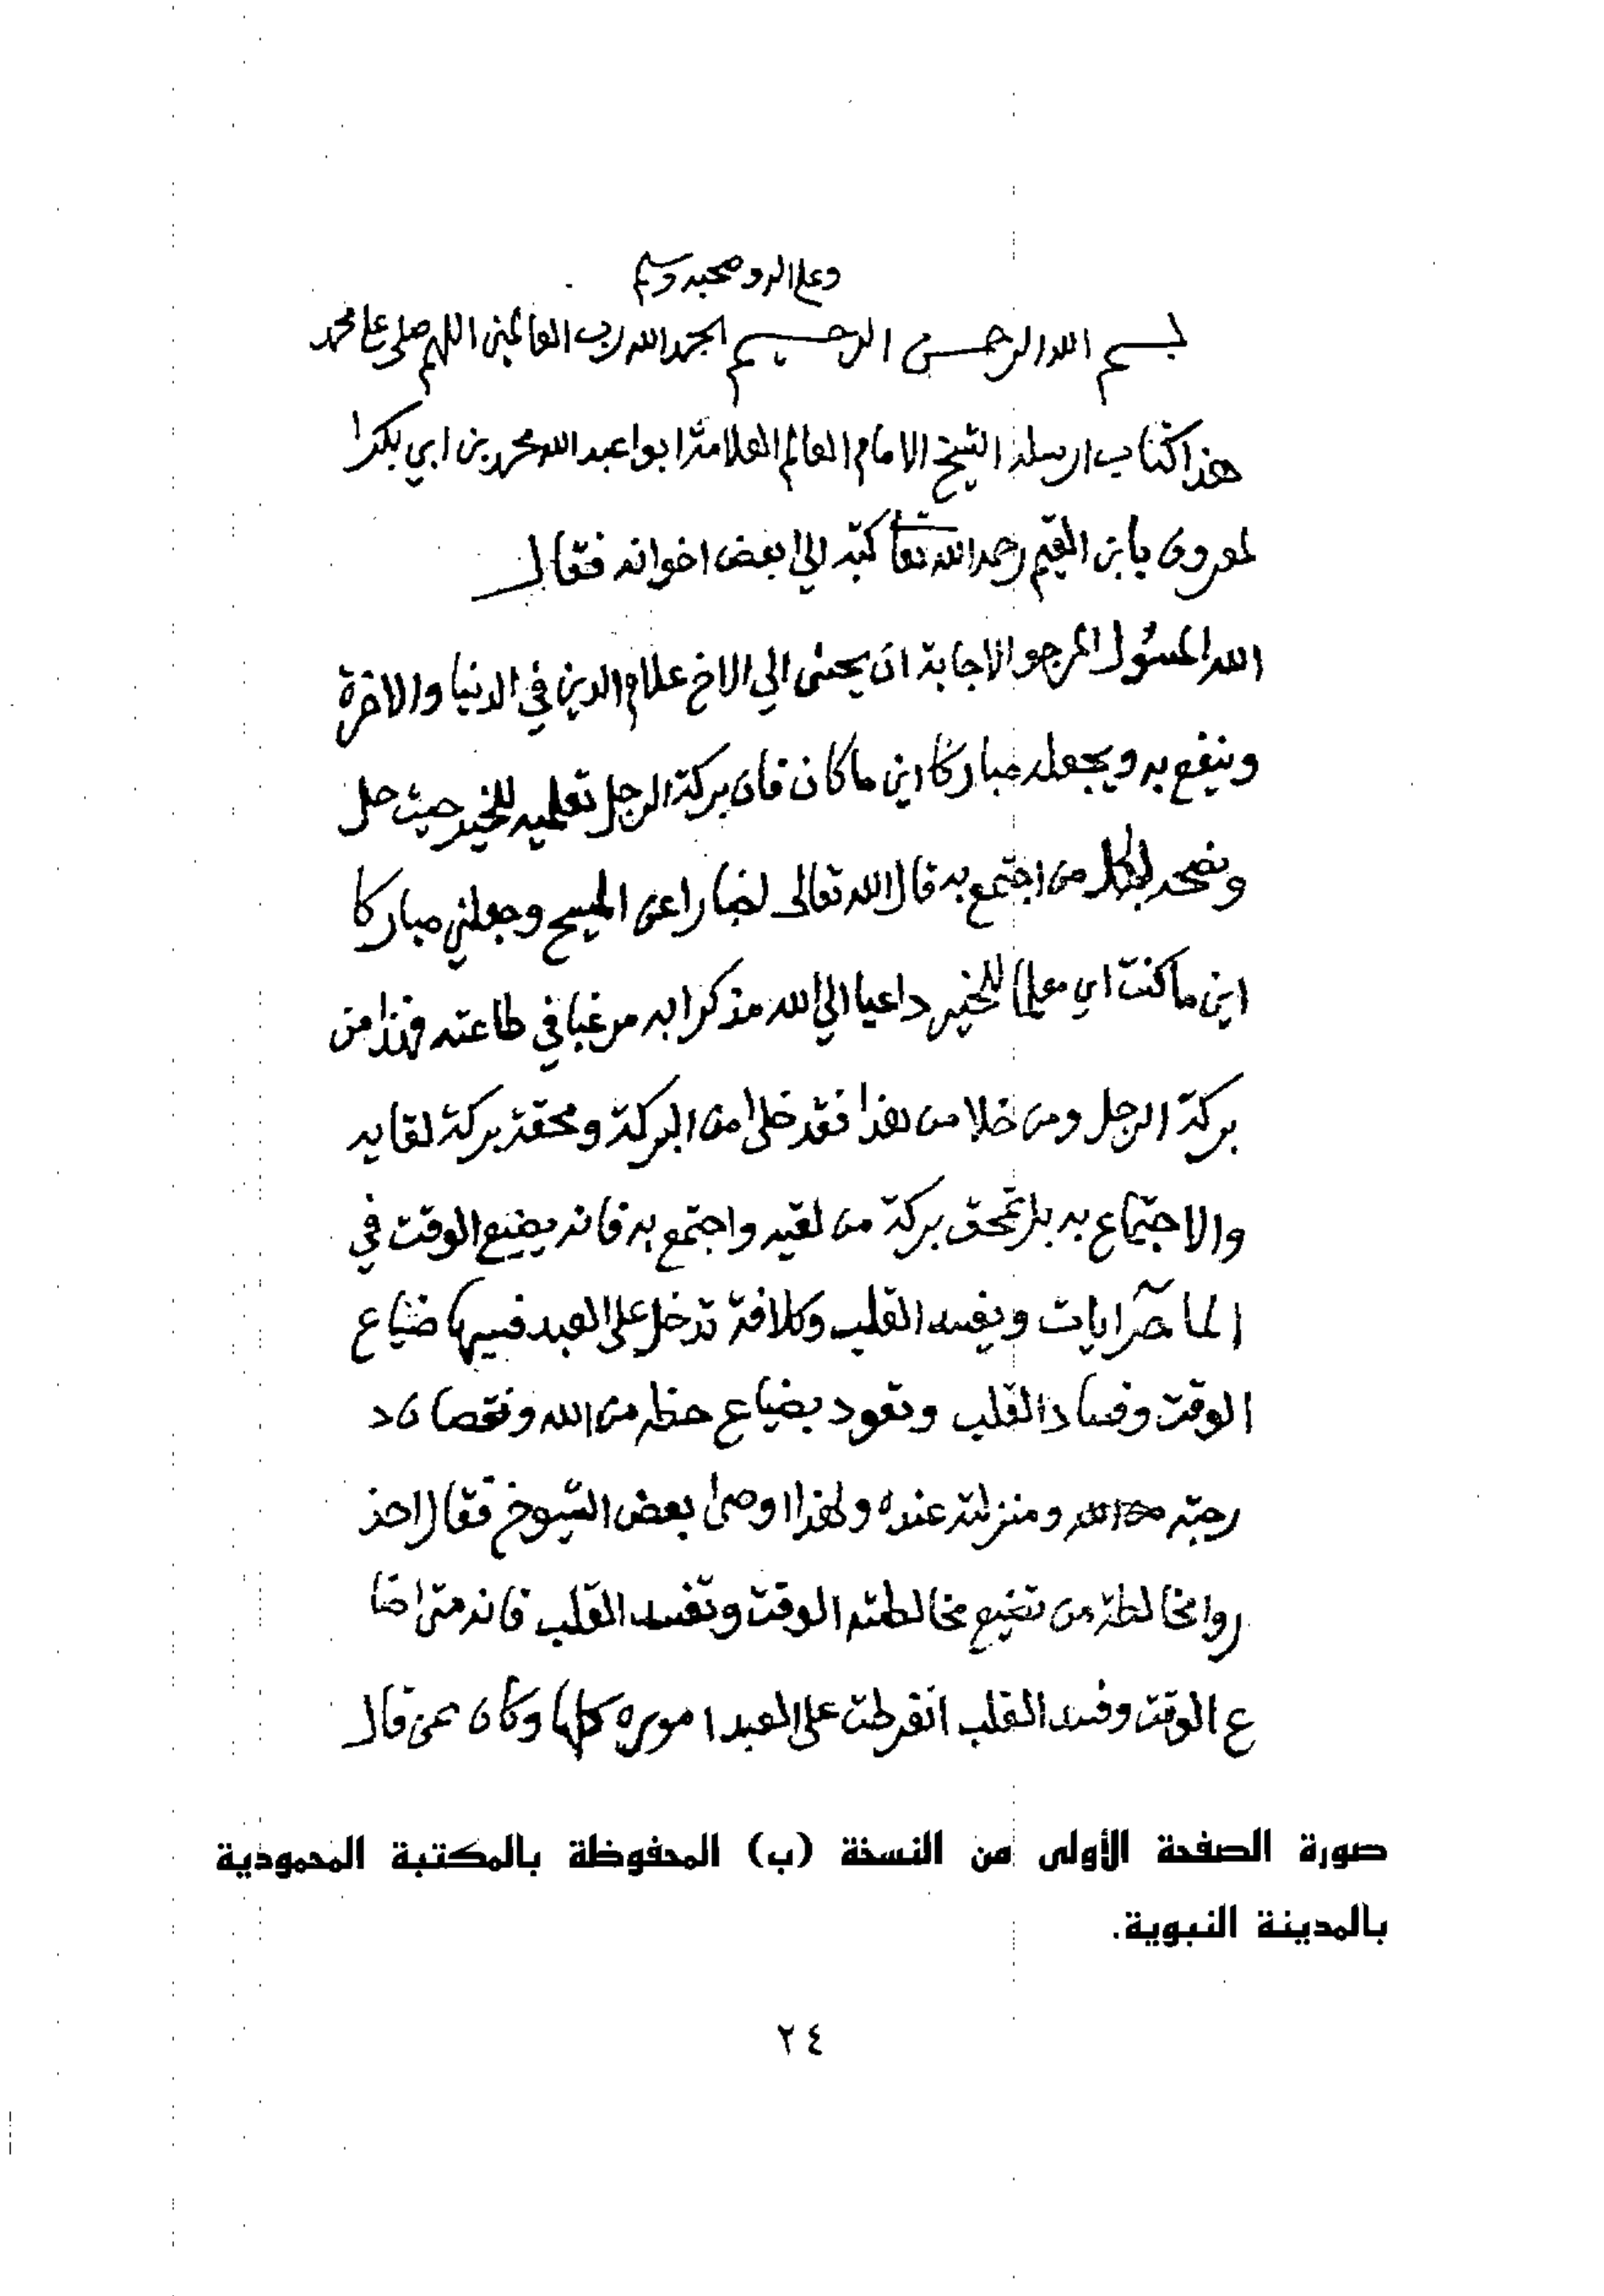 وعلى اله وصحبه وسلم
بسم الله الرحمن الرحيم الحمد الله رب العالمين اللهم صلي على محمد
هذا كتاب ارسله الشيخ الامام العالم العلامة ابوا عبد الله محمد بن ابي بكر ا
لمعروف بابن القيم رحمه الله تعا كتبه الى بعض اخوانه فقال
الله المسؤل المرجو الاجابة ان يحسن الي الاخ علام الدين في الدنيا والاخرة
وينفع به ويجعله مباركا اين ما كان فان بركة الرجل تعليمه للخير حيث حل
ونصحه لكل من اجتمع به قال الله تعالى اخبارا عن المسيح وجعلني مباركا
اين ما كنت اي معلما للخير داعيا الي الله مذكرا به مرغبا في طاعته فهذا من
بركة الرجل ومن خلا من هذا فقد خلى من البركة ومحقة بركة لقايه
والاجتماع به بل تمحق بركة من لقيه واجتمع به فانه يضيع الوقت في
الماجرايات ويفسد القلب وكل افة تدخل على العبد فسببها ضياع
الوقت وفساد القلب وتعود بضياع حظه من الله ونقصان د
رجته ومنزلته عنده ولهذا اوصى بعض الشيوخ فقال احذ
روا مخالطة من تضيع مخالطته الوقت وتفسد القلب فانه متى اضا
ع الوقت وفسد القلب انفرطت على العبد اموره كلها وكان ممن قال
صورة الصفحة الأولى من النسخة (ب) المحفوظة بالمكتبة المحمودية
بالمدينة النبوية.
٢٤